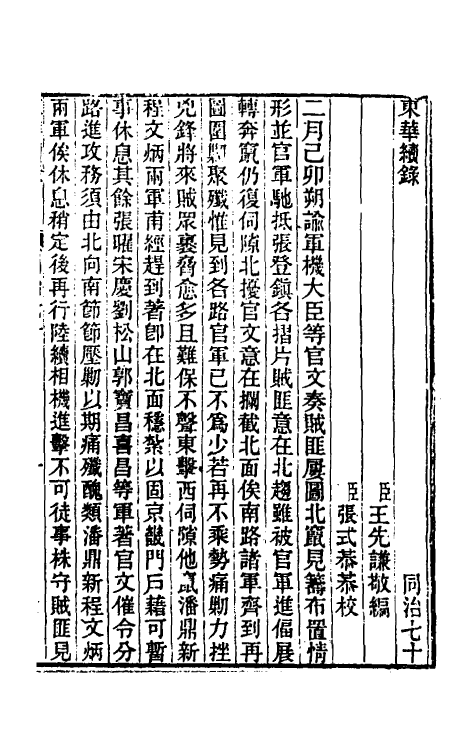 東華續錄 同治七十
臣王先謙敬編
臣張式恭恭校
二月己卯朔諭軍機大臣等官文奏賊匪屢圖北竄見籌布置情
形並官軍馳抵張登鎮各摺片賊匪意在北趨雖被官軍進偪展
轉奔竄仍復伺隙北擾官文意在攔截北面俟南路諸軍齊到再
圖圍剿聚殲惟見到各路官軍已不爲少若再不乘勢痛剿力挫
兇鋒將來賊眾裹脅愈多且難保不聲東擊西伺隙他竄潘鼎新
程文炳兩軍甫經趕到著卽在北面穩紮以固京畿門戶藉可暫
事休息其餘張曜宋慶劉松山郭寶昌喜昌等軍著官文催令分
路進攻務須由北向南節節壓剿以期痛殲醜類潘鼎新程文炳
兩軍俟休息稍定後再行陸續相機進擊不可徒事株守賊匪見